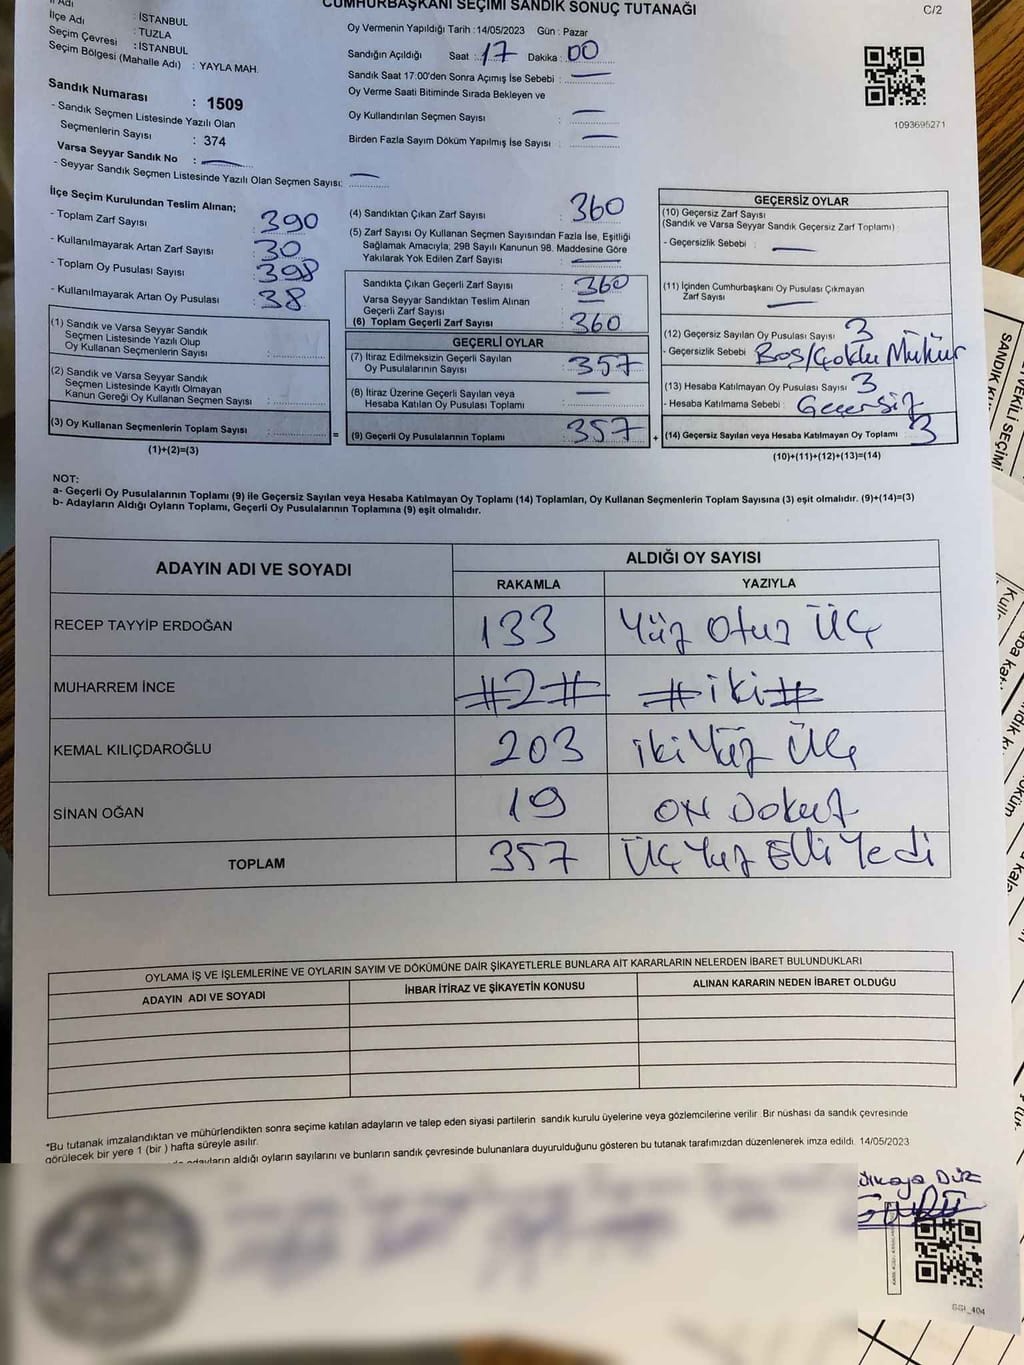 CUMHURBAŞKANI SEÇİMİ SANDIK SONUÇ TUTANAĞI
C/2
İl Adı : İSTANBUL
İlçe Adı : TUZLA
Seçim Çevresi : İSTANBUL
Seçim Bölgesi (Mahalle Adı) : YAYLA MAH.
Oy Vermenin Yapıldığı Tarih : 14/05/2023 Gün : Pazar
Sandığın Açıldığı Saat : 17 Dakika : 00
Sandık Saat 17:00'den Sonra Açımış İse Sebebi : —
Oy Verme Saati Bitiminde Sırada Bekleyen ve
Oy Kullandırılan Seçmen Sayısı : —
Birden Fazla Sayım Döküm Yapılmış İse Sayısı : —
1093695271
Sandık Numarası : 1509
- Sandık Seçmen Listesinde Yazılı Olan
Seçmenlerin Sayısı : 374
Varsa Seyyar Sandık No : —
- Seyyar Sandık Seçmen Listesinde Yazılı Olan Seçmen Sayısı: —
İlçe Seçim Kurulundan Teslim Alınan;
- Toplam Zarf Sayısı : 390
- Kullanılmayarak Artan Zarf Sayısı : 30
- Toplam Oy Pusulası Sayısı : 398
- Kullanılmayarak Artan Oy Pusulası : 38
(1) Sandık ve Varsa Seyyar Sandık
Seçmen Listesinde Yazılı Olup
Oy Kullanan Seçmenlerin Sayısı :
(2) Sandık ve Varsa Seyyar Sandık
Seçmen Listesinde Kayıtlı Olmayan
Kanun Gereği Oy Kullanan Seçmen Sayısı :
(3) Oy Kullanan Seçmenlerin Toplam Sayısı : =
(1)+(2)=(3)
(4) Sandıktan Çıkan Zarf Sayısı : 360
(5) Zarf Sayısı Oy Kullanan Seçmen Sayısından Fazla İse, Eşitliği
Sağlamak Amacıyla; 298 Sayılı Kanunun 98. Maddesine Göre
Yakılarak Yok Edilen Zarf Sayısı : —
Sandıkta Çıkan Geçerli Zarf Sayısı : 360
Varsa Seyyar Sandıktan Teslim Alınan
Geçerli Zarf Sayısı : —
(6) Toplam Geçerli Zarf Sayısı : 360
GEÇERLİ OYLAR
(7) İtiraz Edilmeksizin Geçerli Sayılan
Oy Pusulalarının Sayısı : 357
(8) İtiraz Üzerine Geçerli Sayılan veya
Hesaba Katılan Oy Pusulası Toplamı : —
(9) Geçerli Oy Pusulalarının Toplamı : 357 +
GEÇERSİZ OYLAR
(10) Geçersiz Zarf Sayısı
(Sandık ve Varsa Seyyar Sandık Geçersiz Zarf Toplamı) :
- Geçersizlik Sebebi : —
(11) İçinden Cumhurbaşkanı Oy Pusulası Çıkmayan
Zarf Sayısı : —
(12) Geçersiz Sayılan Oy Pusulası Sayısı : 3
- Geçersizlik Sebebi : Boş/Çoklu Mühür
(13) Hesaba Katılmayan Oy Pusulası Sayısı : 3
- Hesaba Katılmama Sebebi : Geçersiz
(14) Geçersiz Sayılan veya Hesaba Katılmayan Oy Toplamı : 3
(10)+(11)+(12)+(13)=(14)
NOT:
a- Geçerli Oy Pusulalarının Toplamı (9) ile Geçersiz Sayılan veya Hesaba Katılmayan Oy Toplamı (14) Toplamları, Oy Kullanan Seçmenlerin Toplam Sayısına (3) eşit olmalıdır. (9)+(14)=(3)
b- Adayların Aldığı Oyların Toplamı, Geçerli Oy Pusulalarının Toplamına (9) eşit olmalıdır.
ADAYIN ADI VE SOYADI
ALDIĞI OY SAYISI
RAKAMLA YAZIYLA
RECEP TAYYİP ERDOĞAN 133 Yüz Otuz Üç
MUHARREM İNCE #2# #iki#
KEMAL KILIÇDAROĞLU 203 iki Yüz Üç
SİNAN OĞAN 19 ON Dokuz
TOPLAM 357 Üç Yüz Elli Yedi
OYLAMA İŞ VE İŞLEMLERİNE VE OYLARIN SAYIM VE DÖKÜMÜNE DAİR ŞİKAYETLERLE BUNLARA AİT KARARLARIN NELERDEN İBARET BULUNDUKLARI
ADAYIN ADI VE SOYADI İHBAR İTİRAZ VE ŞİKAYETİN KONUSU ALINAN KARARIN NEDEN İBARET OLDUĞU
*Bu tutanak imzalandıktan ve mühürlendikten sonra seçime katılan adayların ve talep eden siyasi partilerin sandık kurulu üyelerine veya gözlemcilerine verilir. Bir nüshası da sandık çevresinde
görülecek bir yere 1 (bir) hafta süreyle asılır.
adayların aldığı oyların sayılarını ve bunların sandık çevresinde bulunanlara duyurulduğunu gösteren bu tutanak tarafımızdan düzenlenerek imza edildi. 14/05/2023
SANDIK
VEKİLİ SEÇİMİ